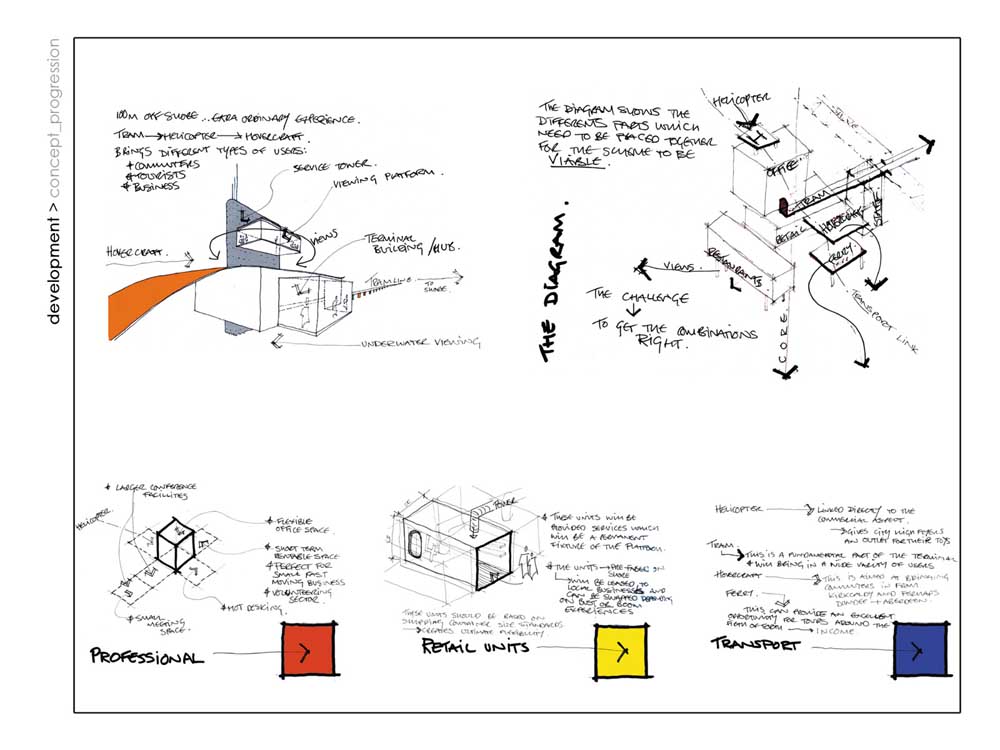 development > concept_progression
100m OFF SHORE... EXTRA ORDINARY EXPERIENCE.
TRAM → HELICOPTER → HOVERCRAFT
BRINGS DIFFERENT TYPES OF USERS:
+ COMMUTERS
+ TOURISTS
+ BUSINESS
SERVICE TOWER.
VIEWING PLATFORM.
VIEWS
HOVERCRAFT.
TERMINAL
BUILDING/HUB.
TRAMLINE
TO
SHORE.
UNDERWATER VIEWING
THE DIAGRAM SHOWS THE
DIFFERENTS PARTS WHICH
NEED TO BE PLACED TOGETHER
FOR THE SCHEME TO BE
VIABLE.
THE DIAGRAM.
HELICOPTER
H
OFFICE
TRAM
RETAIL
HOVERCRAFT
FERRY
RESTAURANTS
VIEWS.
THE CHALLENGE
TO GET THE COMBINATIONS
RIGHT.
CORE.
TRANSPORT LINK
+ LARGER CONFERENCE
FACILITIES
HELICOPTER
+ FLEXIBLE
OFFICE SPACE.
+ SHORT TERM
RENTABLE SPACE
+ PERFECT FOR
SMALL FAST
MOVING BUSINESS
+ VOLUNTEERING
SECTOR.
+ HOT DESKING.
+ SMALL
MEETING
SPACE.
PROFESSIONAL
POWER
+ THESE UNITS WILL BE
PROVIDED SERVICES WHICH
WILL BE A PERMANENT
FIXTURE OF THE PLATFORM.
+ THE UNITS → PRE FABBED ON
SHORE
WILL BE LEASED TO
LOCAL BUSINESSES AND
CAN BE SWAPPED DEPENDING
ON BUST OR BOOM
EXPERIENCES
THESE UNITS SHOULD BE BASED ON
SHIPPING CONTAINER SIZE STANDARDS
→ CREATES ULTIMATE FLEXIBILITY
RETAIL UNITS
HELICOPTER → LINKED DIRECTLY TO THE
COMMERCIAL ASPECT.
→ GIVES CITY HIGH FLYERS
AN OUTLET FOR THEIR TOYS
TRAM.
→ THIS IS A FUNDAMENTAL PART OF THE TERMINAL
+ WILL BRING IN A WIDE VARITY OF USERS
HOVERCRAFT → THIS IS AIMED AT BRINGING
COMMUTERS IN FROM
KIRKCALDY AND PERHAPS
DUNDEE + ABERDEEN.
FERRY.
→ THIS CAN PROVIDE AN EXCELLENT
OPPORTUNITY FOR TOURS AROUND THE
FIRTH OF FORTH → INCOME
TRANSPORT